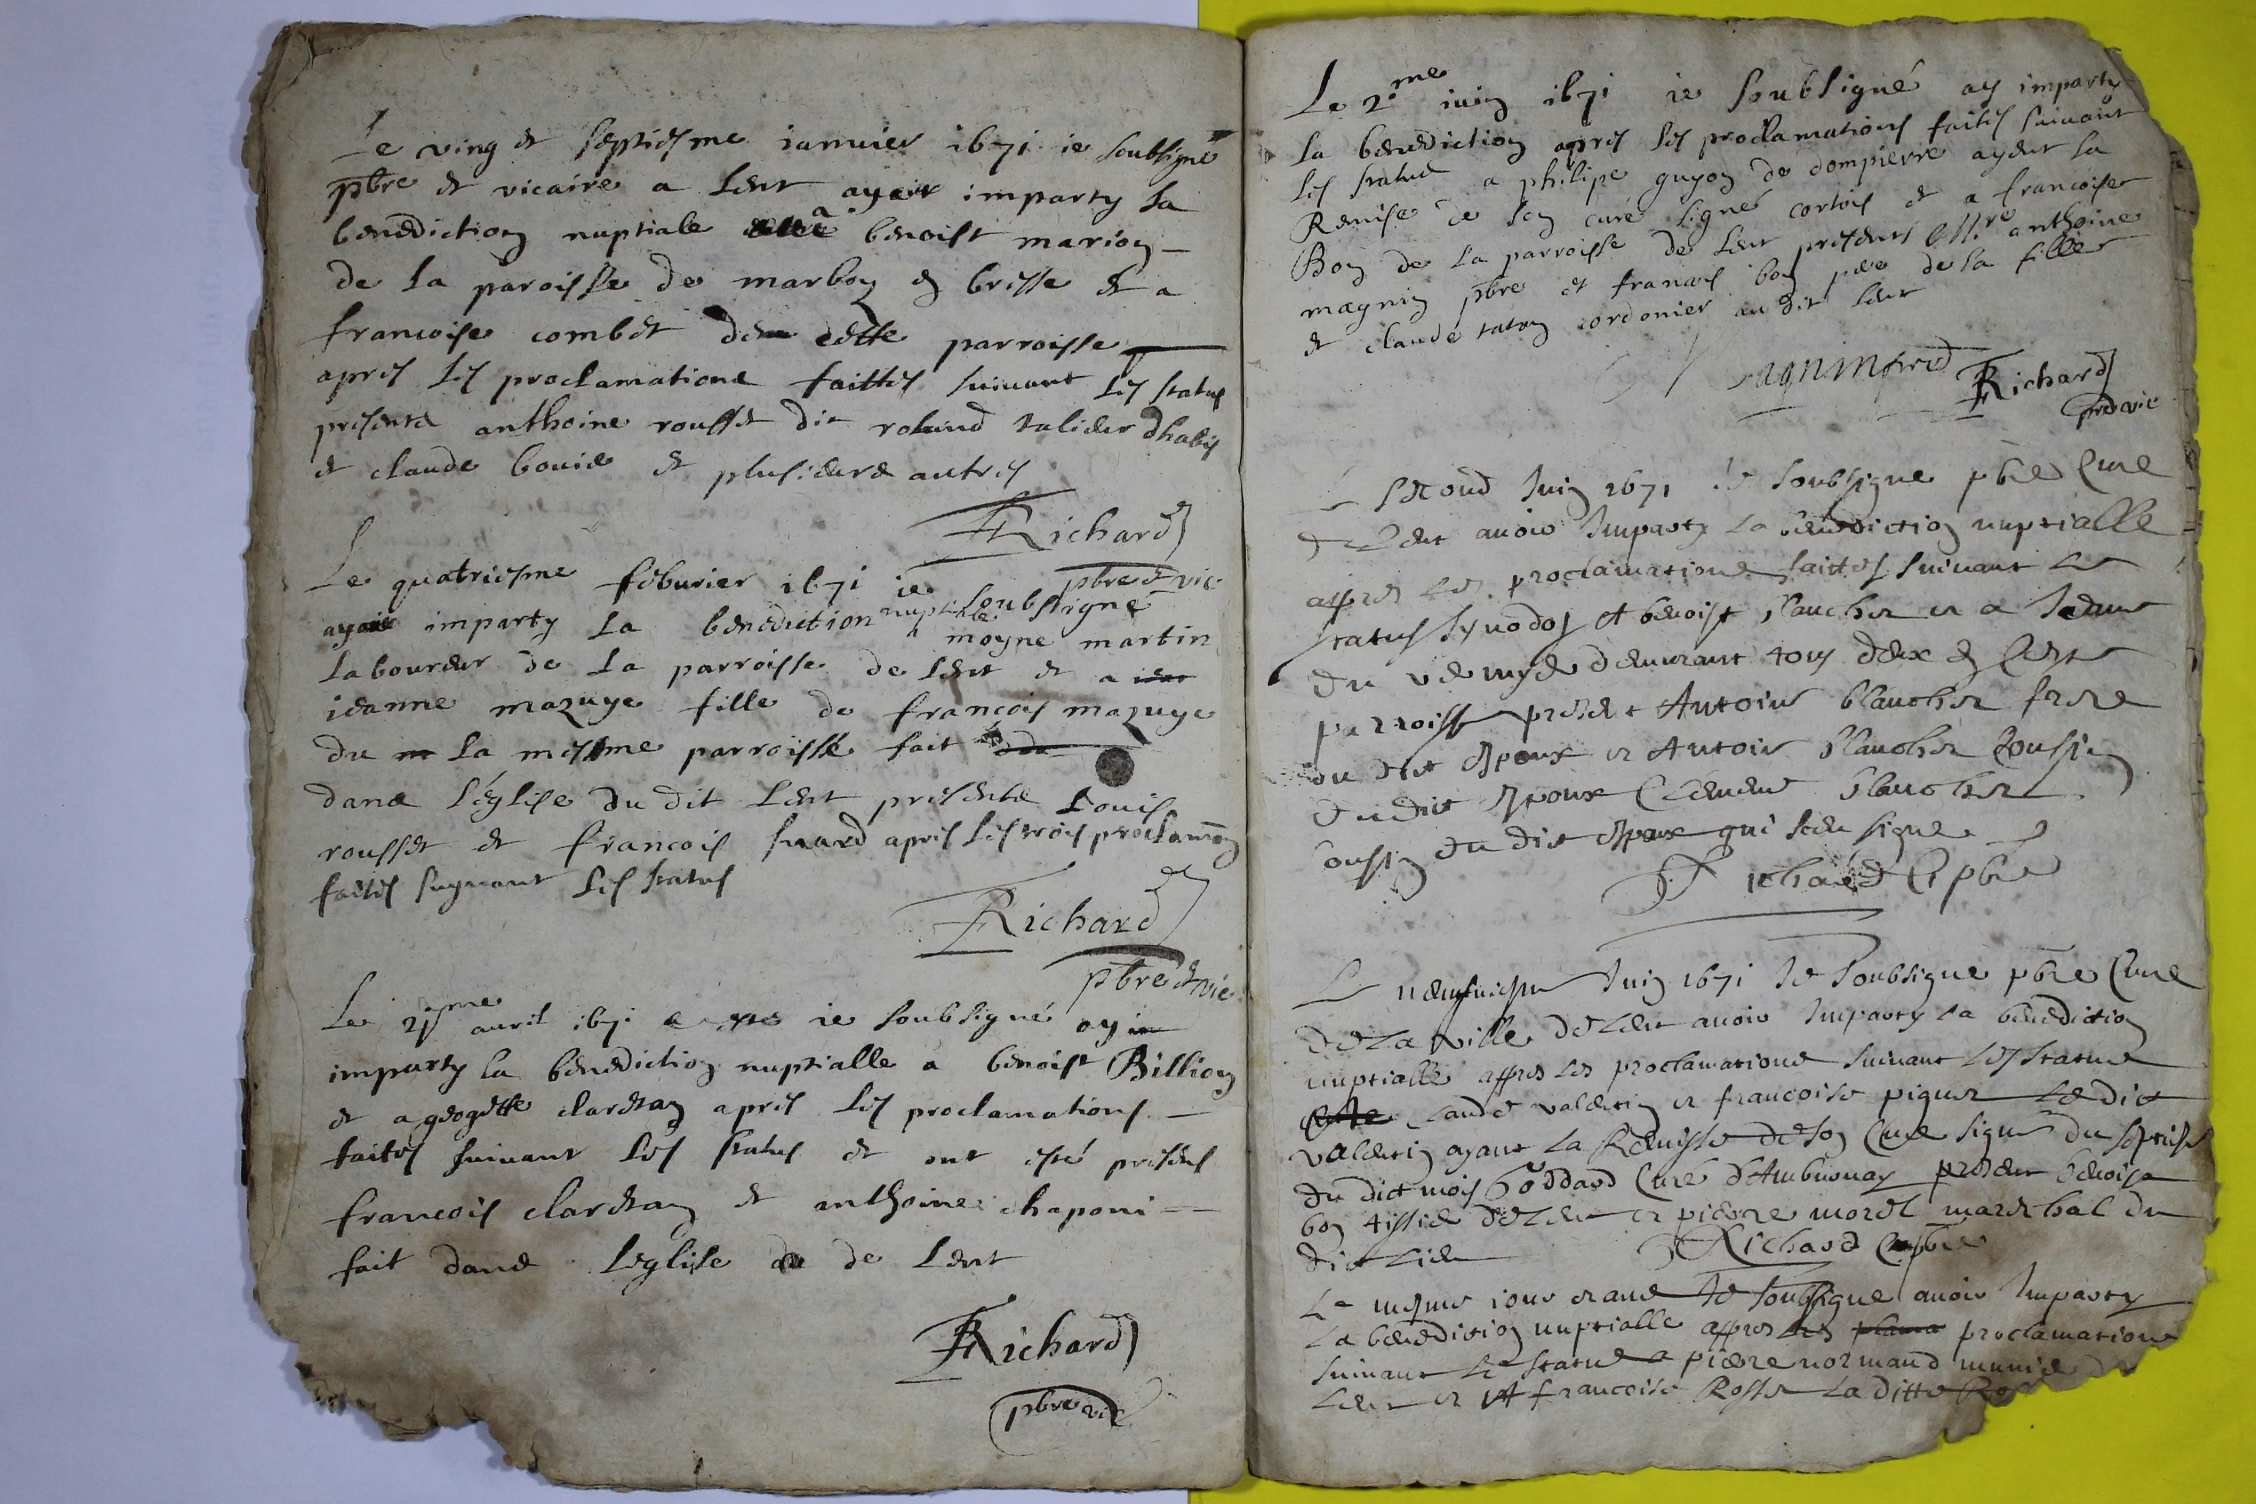 Le ving et septiesme ianuier 1671 ie soubsigné
pbre et vicaire a Lent ayant imparty la
benediction nuptiale a benoist marion
de la paroisse de marboz en bresse et a
francoise combet de cette parroisse
apres les proclamations faittes suiuant les status
presents anthoine rousset dit roland talieur dhabis
et claude bouie et plusieurs autres
Richard
pbre et vic
Le quatriesme feburier 1671 ie soubsigné
ayant imparty la benediction nuptiale moyne martin
laboureur de la parroisse de lent et a
ieanne mazuye fille de francois mazuye
du la mesme parroisse fait
dans l'église du dit lent presents Louis
rousset et francois suard apres les trois proclamaon
faites suyuant les status
Richard
pbre et vic
Le me auril 1671 ie soubsigné ay
imparty la benediction nuptialle a benoist Billion
et a geogette claretan apres les proclamations
faites suiuant les status et ont esté presens
francois claretan et anthoine chaponi
fait dans Leglise de Lent
Richard
pbre vic
Le 2me iuin 1671 ie soubsigné ay imparty
la benediction apres les proclamations faites suiuant
les status a philipe guyon de dompierre ayent la
Remise de son curé signé cortois et a francoise
Bon de la parroisse de lent presents anthoine
magnin pbre et francois bon pere de la fille
et claude taton cordonier au dit lent
Richard
pbre vic
Le second Juin 1671 Je soubsigne pbre Cure
de Lent auoir Imparty la benediction nuptialle
appres les proclamations faittes suiuant les
status synodos A benoist blanchet et a
du demurant tous deux en ceste
parroisse present Antoine blanchet frere
du dit Espoux et Antoine blanchet Coussin
du dit Espoux Clemens blanchet
Coussin du dit Espoux qui sceu signe
Richard C pbre
Le Juin 1671 Je Soubsigne pbre Cure
de La ville de Lent auoir Imparty la benediction
nuptialle appres les proclamations suiuant les status
Claude valentin et francoise piquet Le dit
valentin ayant la Remisse de son Cure signe du septiesme
du dict mois Goddard Cure d'Ambronay present benoist
bon tissie de Lent et pierre morel mareschal du
dit Lieu Richard C pbre
Le mesme iour et ans Je soubsigne auoir Imparty
La benediction nuptialle appres les proclamations
suiuant Le statuts a pierre normand
Lent et A francoise Rosset La ditte